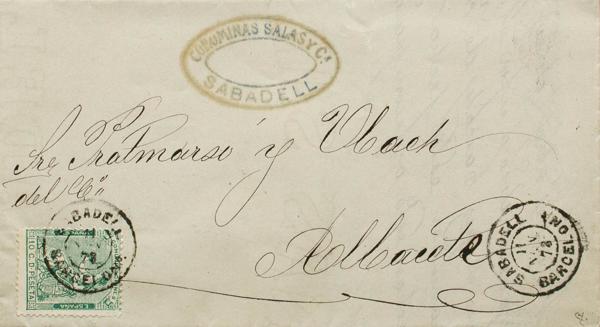 COROMINAS SALAS Y Cª
SABADELL
Sres Pratmarso y Vlach
del Cº
Albacete
SABADELL
11
78
BARCELONA
10 C. D PESETA
ESPAÑA
SABADELL
11
78
BARCELONA